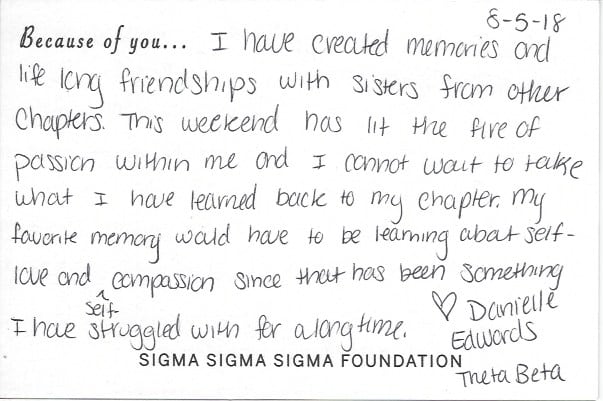 8-5-18
Because of you... I have created memories and
life long friendships with sisters from other
Chapters. This weekend has lit the fire of
passion within me and I cannot wait to take
what I have learned back to my chapter. My
favorite memory would have to be learning about self-
love and self-compassion since that has been something
I have struggled with for a long time.
♡ Danielle
Edwards
Theta Beta
SIGMA SIGMA SIGMA FOUNDATION